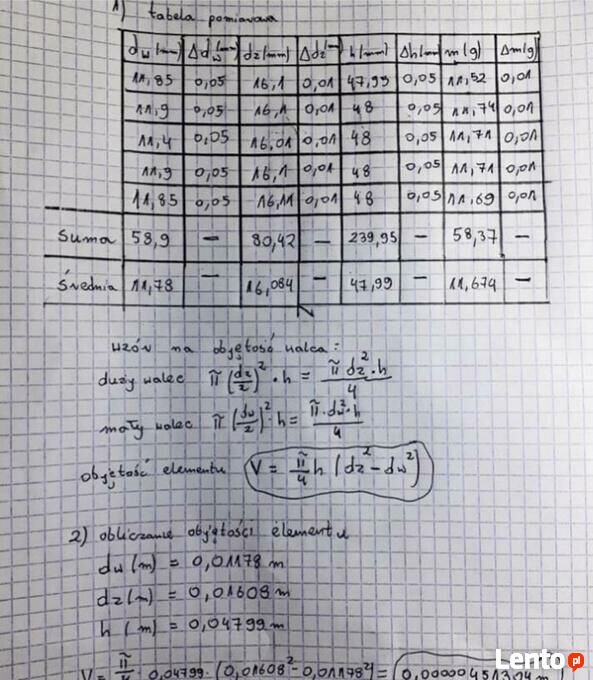 1) tabela pomiarowa
dw (mm) Δdw (mm) dz (mm) Δdz (mm) h (mm) Δh (mm) m (g) Δm (g)
11,85 0,05 16,1 0,01 47,95 0,05 11,52 0,01
11,9 0,05 16,1 0,01 48 0,05 11,74 0,01
11,4 0,05 16,01 0,01 48 0,05 11,71 0,01
11,9 0,05 16,1 0,01 48 0,05 11,71 0,01
11,85 0,05 16,11 0,01 48 0,05 11,69 0,01
Suma 58,9 — 80,42 — 239,95 — 58,37 —
Średnia 11,78 — 16,084 — 47,99 — 11,674 —
wzór na objętość walca:
duży walec π (dz/2)² · h = π dz² · h / 4
mały walec π (dw/2)² · h = π · dw² · h / 4
objętość elementu V = π/4 h (dz² - dw²)
2) obliczanie objętości elementu
dw (m) = 0,01178 m
dz (m) = 0,01608 m
h (m) = 0,04799 m
V = π/4 · 0,04799 · (0,01608² - 0,01178²) = 0,00000451304 m
Lento.pl